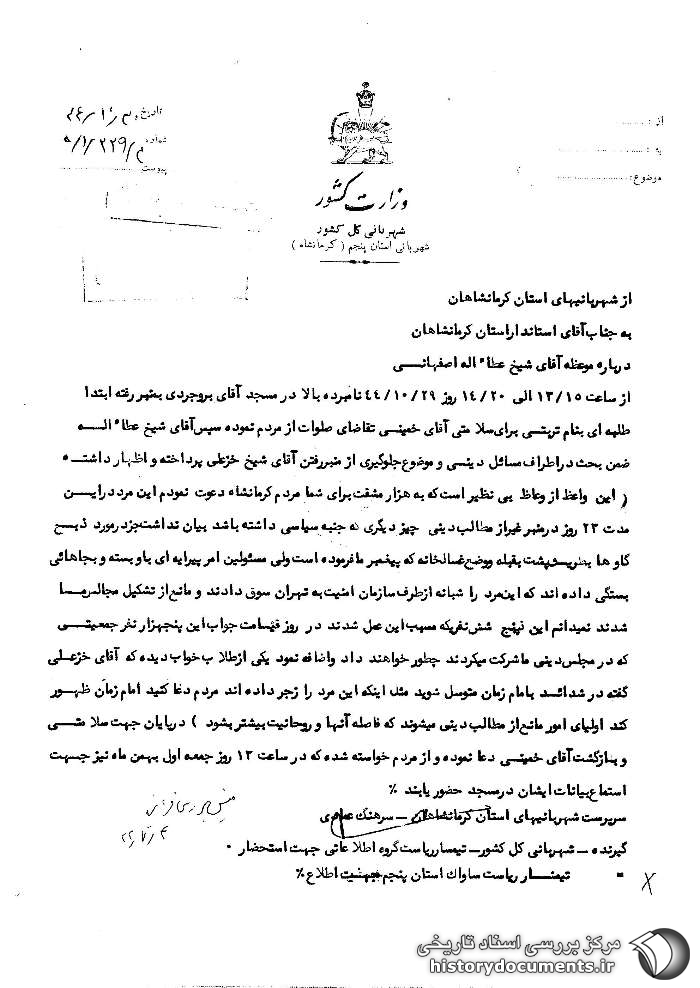 تاریخ
شماره
پیوست
از :
به :
موضوع :
وزارت کشور
شهربانی کل کشور
شهربانی استان پنجم ( کرمانشاه )
از شهربانیهای استان کرمانشاهان
به جناب آقای استاندار استان کرمانشاهان
درباره موعظه آقای شیخ عطاء اله اصفهانی
از ساعت ۱۳/۱۵ الی ۱۴/۲۰ روز ۴۴/۱۰/۲۹ نامبرده بالا در مسجد آقای بروجردی بمنبر رفته ابتدا
طلبه ای بنام تربتی برای سلامتی آقای خمینی تقاضای صلوات از مردم نموده سپس آقای شیخ عطاء الـــه
ضمن بحث در اطراف مسائل دینی و موضوع جلوگیری از منبر رفتن آقای شیخ خزعلی پرداخته و اظهار داشتـــه
( این واعظ از وعاظ بی نظیر است که به هزار مشقت برای شما مردم کرمانشاه دعوت نمودم این مرد در ایـــن
مدت ۲۳ روز در منبر غیر از مطالب دینی چیز دیگری که جنبه سیاسی داشته باشد بیان نداشت جز در مورد ذبـــح
گاو ها بطریق پشت بقبله و وضع غسالخانه که پیغمبر ما فرموده است ولی مسئولین امر پیرایه ای باو بسته و بجاهائی
بستگی داده اند که این مرد را شبانه از طرف سازمان امنیت به تهران سوق دادند و مانع از تشکیل مجالس مـــا
شدند نمیدانم این پنج شش نفریکه مسبب این عمل شدند در روز قیامت جواب این پنجهزار نفر جمعیتـــی
که در مجلس دینی ما شرکت میکردند چطور خواهند داد واضافه نمود یکی از طلاب خواب دیده که آقای خزعلی
گفته در شدائد بامام زمان متوسل شوید مثل اینکه این مرد را زجر داده اند مردم دعا کنید امام زمان ظهور
کند اولیای امور مانع از مطالب دینی میشوند که فاصله آنها و روحانیت بیشتر بشود ) در پایان جهت سلامتـــی
و بازگشت آقای خمینی دعا نموده و از مردم خواسته شده که در ساعت ۱۳ روز جمعه اول بهمن ماه نیز جهـــت
استماع بیانات ایشان در مسجد حضور یابند ٪
سرپرست شهربانیهای استان کرمانشاهان – سرهنگ
گیرنده – شهربانی کل کشور – تیمسار ریاست گروه اطلاعاتی جهت استحضار .
" تیمسار ریاست ساواک استان پنجم جهت اطلاع ٪
مرکز بررسی اسناد تاریخی
historydocuments.ir